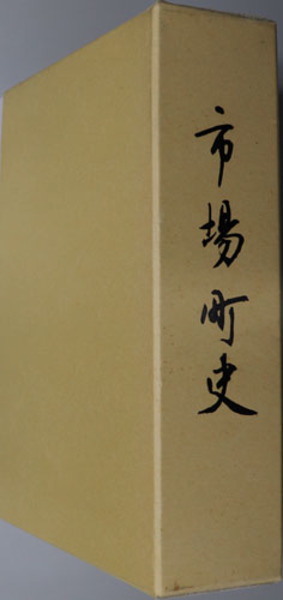 市場町史